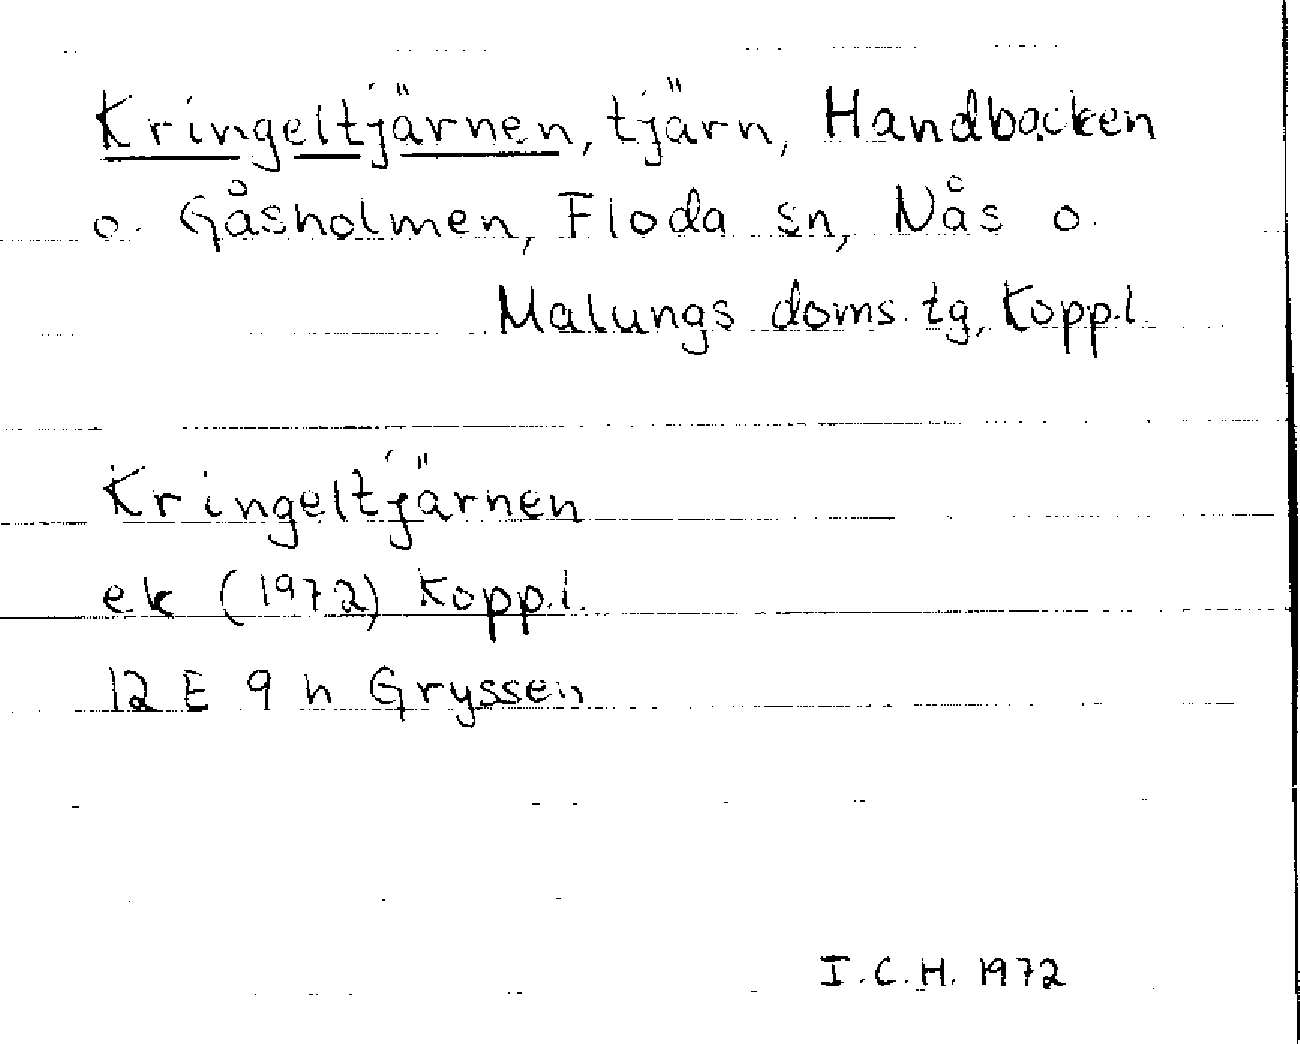 Kringeltjärnen, tjärn, Handbacken
o. Gåsholmen, Floda sn, Nås o.
Malungs doms. tg, Kopp.l
Kringeltjärnen
ek (1972) Kopp.l.
12 E 9 h Gryssen
I.C.H. 1972